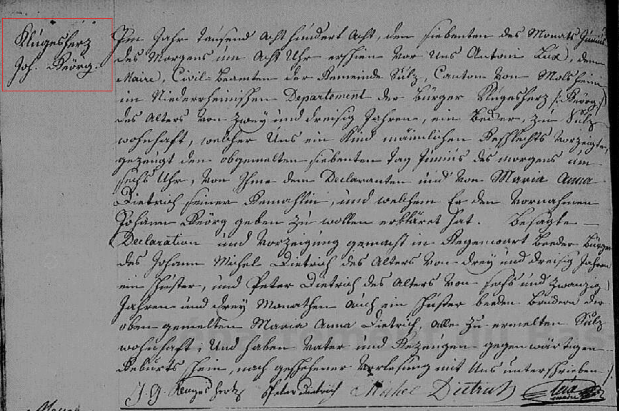 Klugesherz
Joh. Georg.
Im Jahr tausend acht hundert acht, den siebenten des Monats Junius
des Morgens um acht Uhr erschien vor Uns Antoni Lux, dem
Maire, Civil-Beamten der Gemeinde Sulz, Canton von Molsheim
im Niederrheinischen Departement der Bürger Klugesherz Georg
des Alters von zwey und dreisig Jahren, ein zu Sulz
wohnhaft, welcher Uns ein Kind männlichen Geschlechts vorzeigte,
gezeugt den obgemelten siebenten tag Junius des morgens um
sechs Uhr, von Ihme dem Declaranten und von Maria Anna
Dietrich seiner Gemahlin, und welchem Er den Vornahmen
Johann Georg geben zu wollen erkläret hat. Besagte
Declaration und Vorzeigung gemacht in Gegenwart beeder Bürger
des Johann Michel Dietrich des Alters von drey und dreisig Jahren
ein Huster, und Peter Dietrich des Alters von sechs und zwanzig
Jahren und drey Monathen auch ein Huster beeden Brüdern der
oben gemelten Maria Anna Dietrich, alle zu ermelten Sulz
wohnhaft, Und haben Vater und Gezeugen gegenwärtigen
Geburts schein, nach geschehener Vorlesung mit Uns unterschrieben
J. G. Klugesherz Peter Dietrich Michel Dietrich Lux